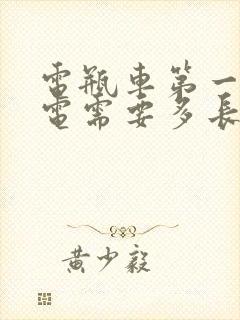 電瓶車第一
電需要多長
黄少毅